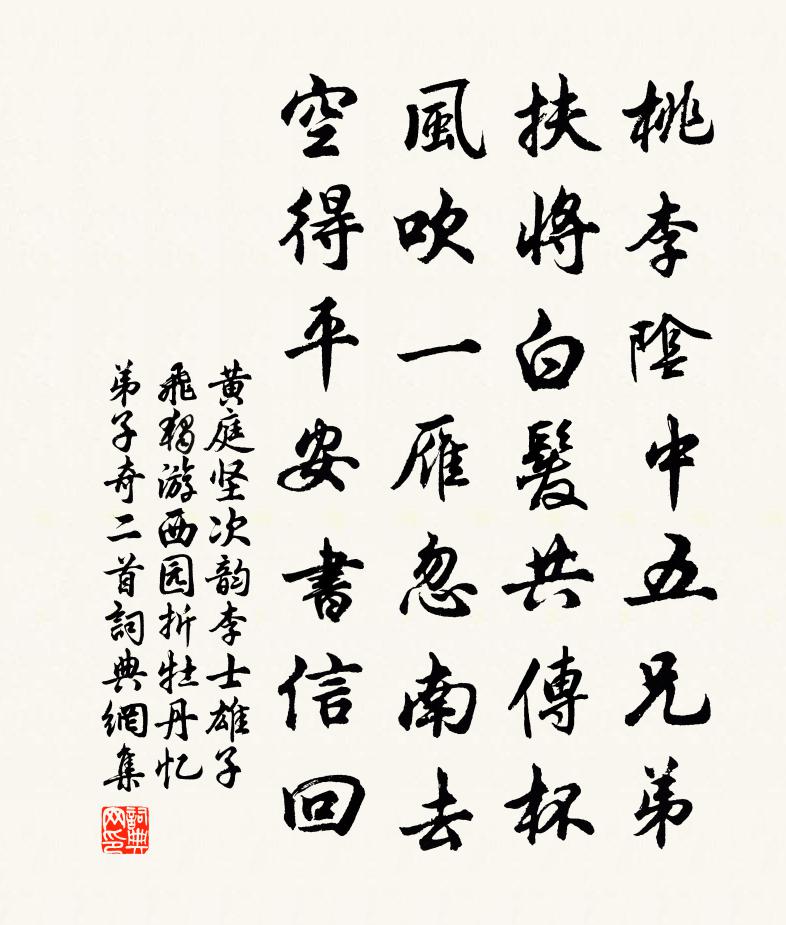 桃李陰中五兄弟
扶將白髮共傳杯
風吹一雁忽南去
空得平安書信回
黄庭坚次韵李士雄子
飛獨游西园折牡丹忆
弟子奇二首詞典網集
詞典网印